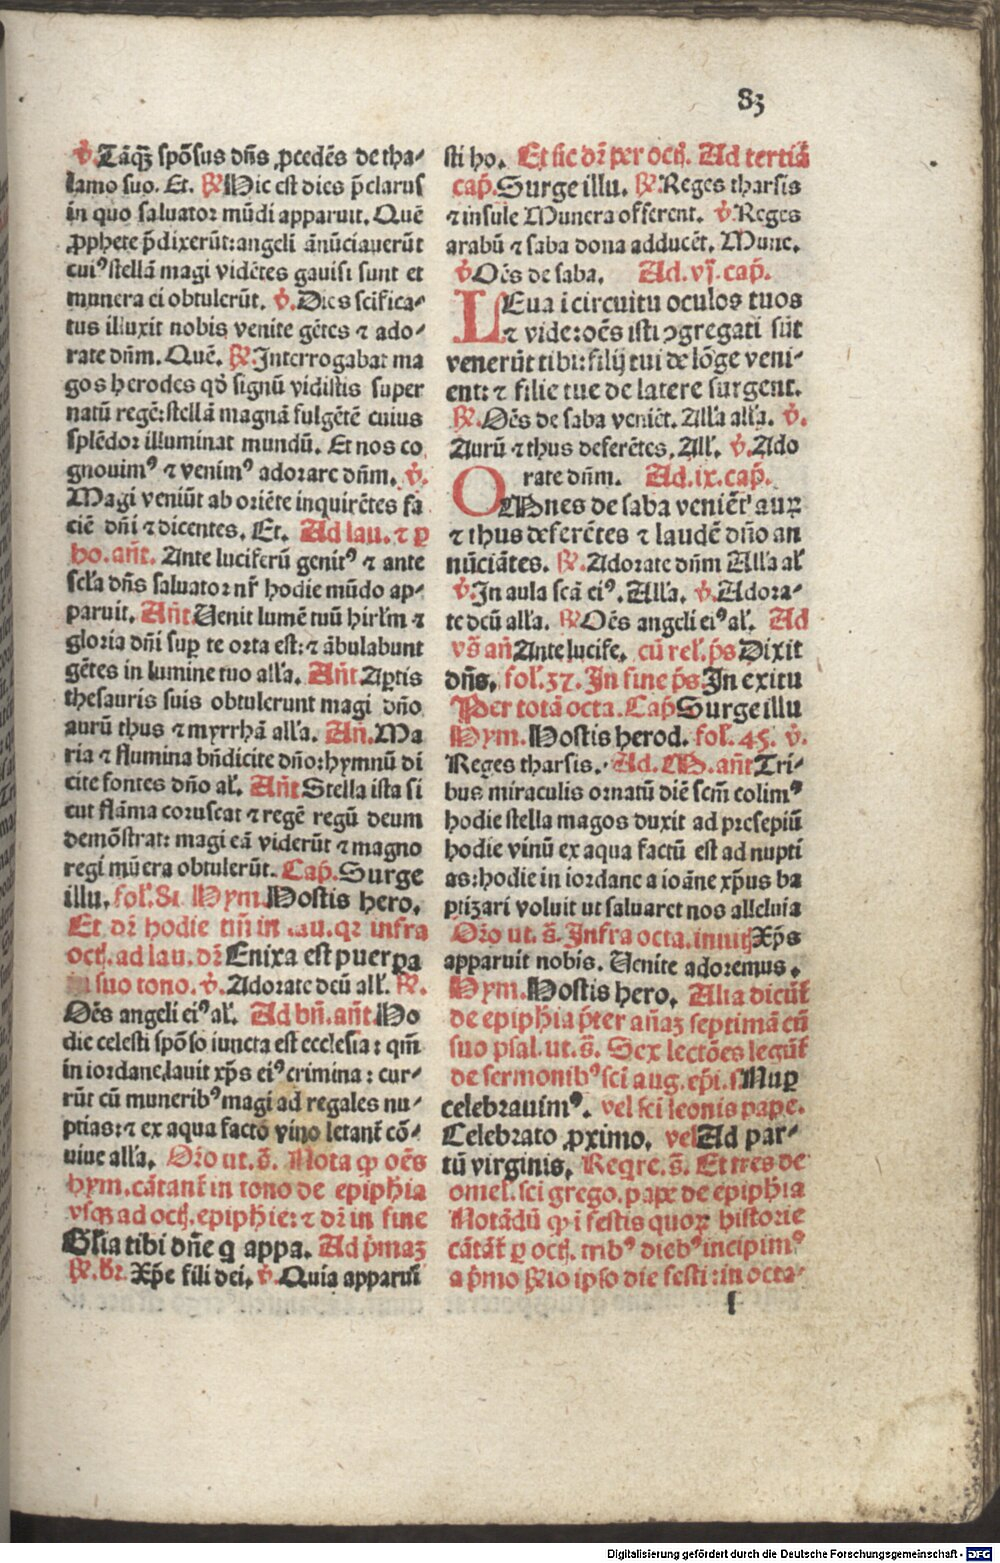 83
℣.Tãq̃ʒ spõsus dñs ꝓcedẽs de tha⸗
lamo suo. Et. ℟Hic est dies p̃clarus
in quo saluator mũdi apparuit. Quẽ
ꝓphete p̃dixerũt:angeli ãnũciauerũt
cuiꝰ stellã magi vidẽtes gauisi sunt et
munera ei obtulerũt. ℣. Dies scifica⸗
tus illuxit nobis venite gẽtes ⁊ ado⸗
rate dñm. Quẽ. ℟.Interrogabat ma
gos herodes qđ signũ vidistis super
natũ regẽ:stellã magnã fulgẽtẽ cuius
splẽdor illuminat mundũ. Et nos co
gnouimꝰ ⁊ venimꝰ adorare dñm. ℣.
Magi veniũt ab oriẽte inquirẽtes fa
ciẽ dñi ⁊ dicentes. Et. Ad lau. ⁊ ꝑ
ho. añt. Ante luciferũ genitꝰ ⁊ ante
scl̃a dñs saluator nr̃ hodie mũdo ap⸗
paruit. Añt Uenit lumẽ tuũ hirl̃m ⁊
gloria dñi sup̱ te orta est:⁊ ãbulabunt
gẽtes in lumine tuo all̃a. Añt Aꝑtis
thesauris suis obtulerunt magi dño
aurũ thus ⁊ myrrhã all̃a. Añ. Ma
ria ⁊ flumina bñdicite dño:hymnũ di
cite fontes dño al̃. Añt Stella ista si
cut flãma coruscat ⁊ regẽ regũ deum
demõstrat: magi eã viderũt ⁊ magno
regi mũera obtulerũt. Cap̃. Surge
illu. fol̃.81 Hym. Hostis hero.
Et dr̃ hodie tm̃ in lau. qꝛ infra
octɉ. ad lau. dr̃ Enixa est puerꝑa
in suo tono. ℣. Adorate deũ all̃. ℟.
Oẽs angeli eiꝰ al̃. Ad bñ. añt. Ho
die celesti spõso iuncta est ecclesia: qm̃
in iordane lauit xp̃s eiꝰ crimina: cur⸗
rũt cũ muneribꝰ magi ad regales nu⸗
ptias:⁊ ex aqua facto vino letanť cõ⸗
uiue all̃a. Or̃o ut.s̃. Nota ꝙ oẽs
hym. cãtanť in tono de epiphia
vsqʒ ad octɉ. epiphie: ⁊ dr̃ in fine
Gl̃ia tibi dñe q appa. Ad p̃maʒ
℟.br̃. Xp̃e fili dei. ℣. Quia apparui
sti ho. Et sic dr̃ per octɉ. Ad tertiã
cap̃. Surge illu. ℟. Reges tharsis
⁊ insule Munera offerent. ℣. Reges
arabũ ⁊ saba dona adducẽt. Mune.
℣ Oẽs de saba. Ad. vɉ. cap̃.
LEua i circuitu oculos tuos
⁊ vide:oẽs isti ↄgregati sũt
venerũt tibi: filij tui de lõge veni⸗
ent: ⁊ filie tue de latere surgent.
℟. Oẽs de saba veniẽt. All̃a all̃a. ℣.
Aurũ ⁊ thus deferẽtes. All̃. ℣. Ado
rate dñm. Ad.ix.cap̃.
OMnes de saba veniẽt auꝝ
⁊ thus deferẽtes ⁊ laudẽ dño an
nũciãtes. ℟. Adorate dñm All̃a al̃
℣. In aula scã eiꝰ. All̃a. ℣. Adora⸗
te deũ all̃a. ℟ Oẽs angeli eiꝰ al̃. Ad
vs̃ añ Ante lucife. cũ rel̃. p̃s Dixit
dñs. fol̃.37. In fine p̃s In exitu
Per totã octa. Cap̃ Surge illu
Hym. Hostis herod. fol̃. 45. ℣.
Reges tharsis. Ad. M. añt Tri⸗
bus miraculis ornatũ diẽ scm̃ colimꝰ
hodie stella magos duxit ad presepiũ
hodie vinũ ex aqua factũ est ad nupti
as:hodie in iordane a ioãne xp̃us ba
ptizari voluit ut saluaret nos alleluia
Or̃o ut.s̃. Infra octa. inuitɉ Xp̃s
apparuit nobis. Uenite adoremus.
Hym. Hostis hero. Alia dicũť
de epiphia p̃ter añaʒ septimã cũ
suo psal. ut.s̃. Sex lectões legũť
de sermonibꝰ sci aug. epĩ. s Nuꝑ
celebrauimꝰ. vel sci leonis pape.
Celebrato ꝓximo. vel Ad par⸗
tũ virginis. Reqre.s̃. Et tres de
omel. sci grego. pape de epiphia
Notãdũ ꝙ i festis quoꝝ historie
cãtãť ꝑ octɉ. tribꝰ diebꝰ incipimꝰ
a p̃mo ℟io ipso die festi: in octa⸗
l
Digitalisierung gefördert durch die Deutsche Forschungsgemeinschaft - DFG